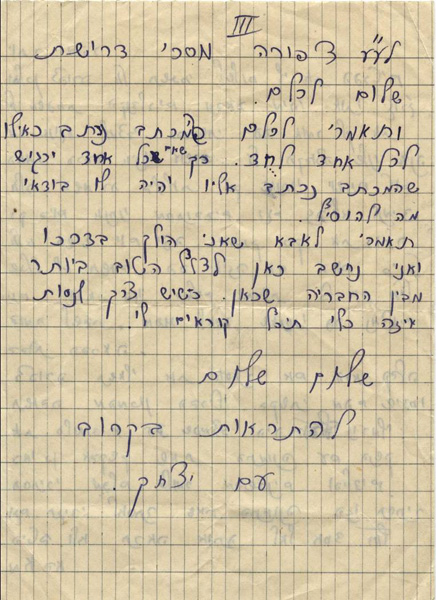 III
לע"ע צפורה מסרי דרישת
שלום לכלם.
ותאמרי לכלם שהמכתב נכתב כאילו
לכל אחד לחד. כך שאם כל אחד ירגיש
שהמכתב נכתב אליו יהיה לו בודאי
מה להוסיף.
תאמרי לאבא שאני הולך בדרכו
ואני נחשב כאן לצלף הטוב ביותר
מבין החבריה שכאן. כשיש צרך לנסות
איזה כלי תיכף קוראים לי.
שלום שלום
להתראות בקרוב
עם יצחק.